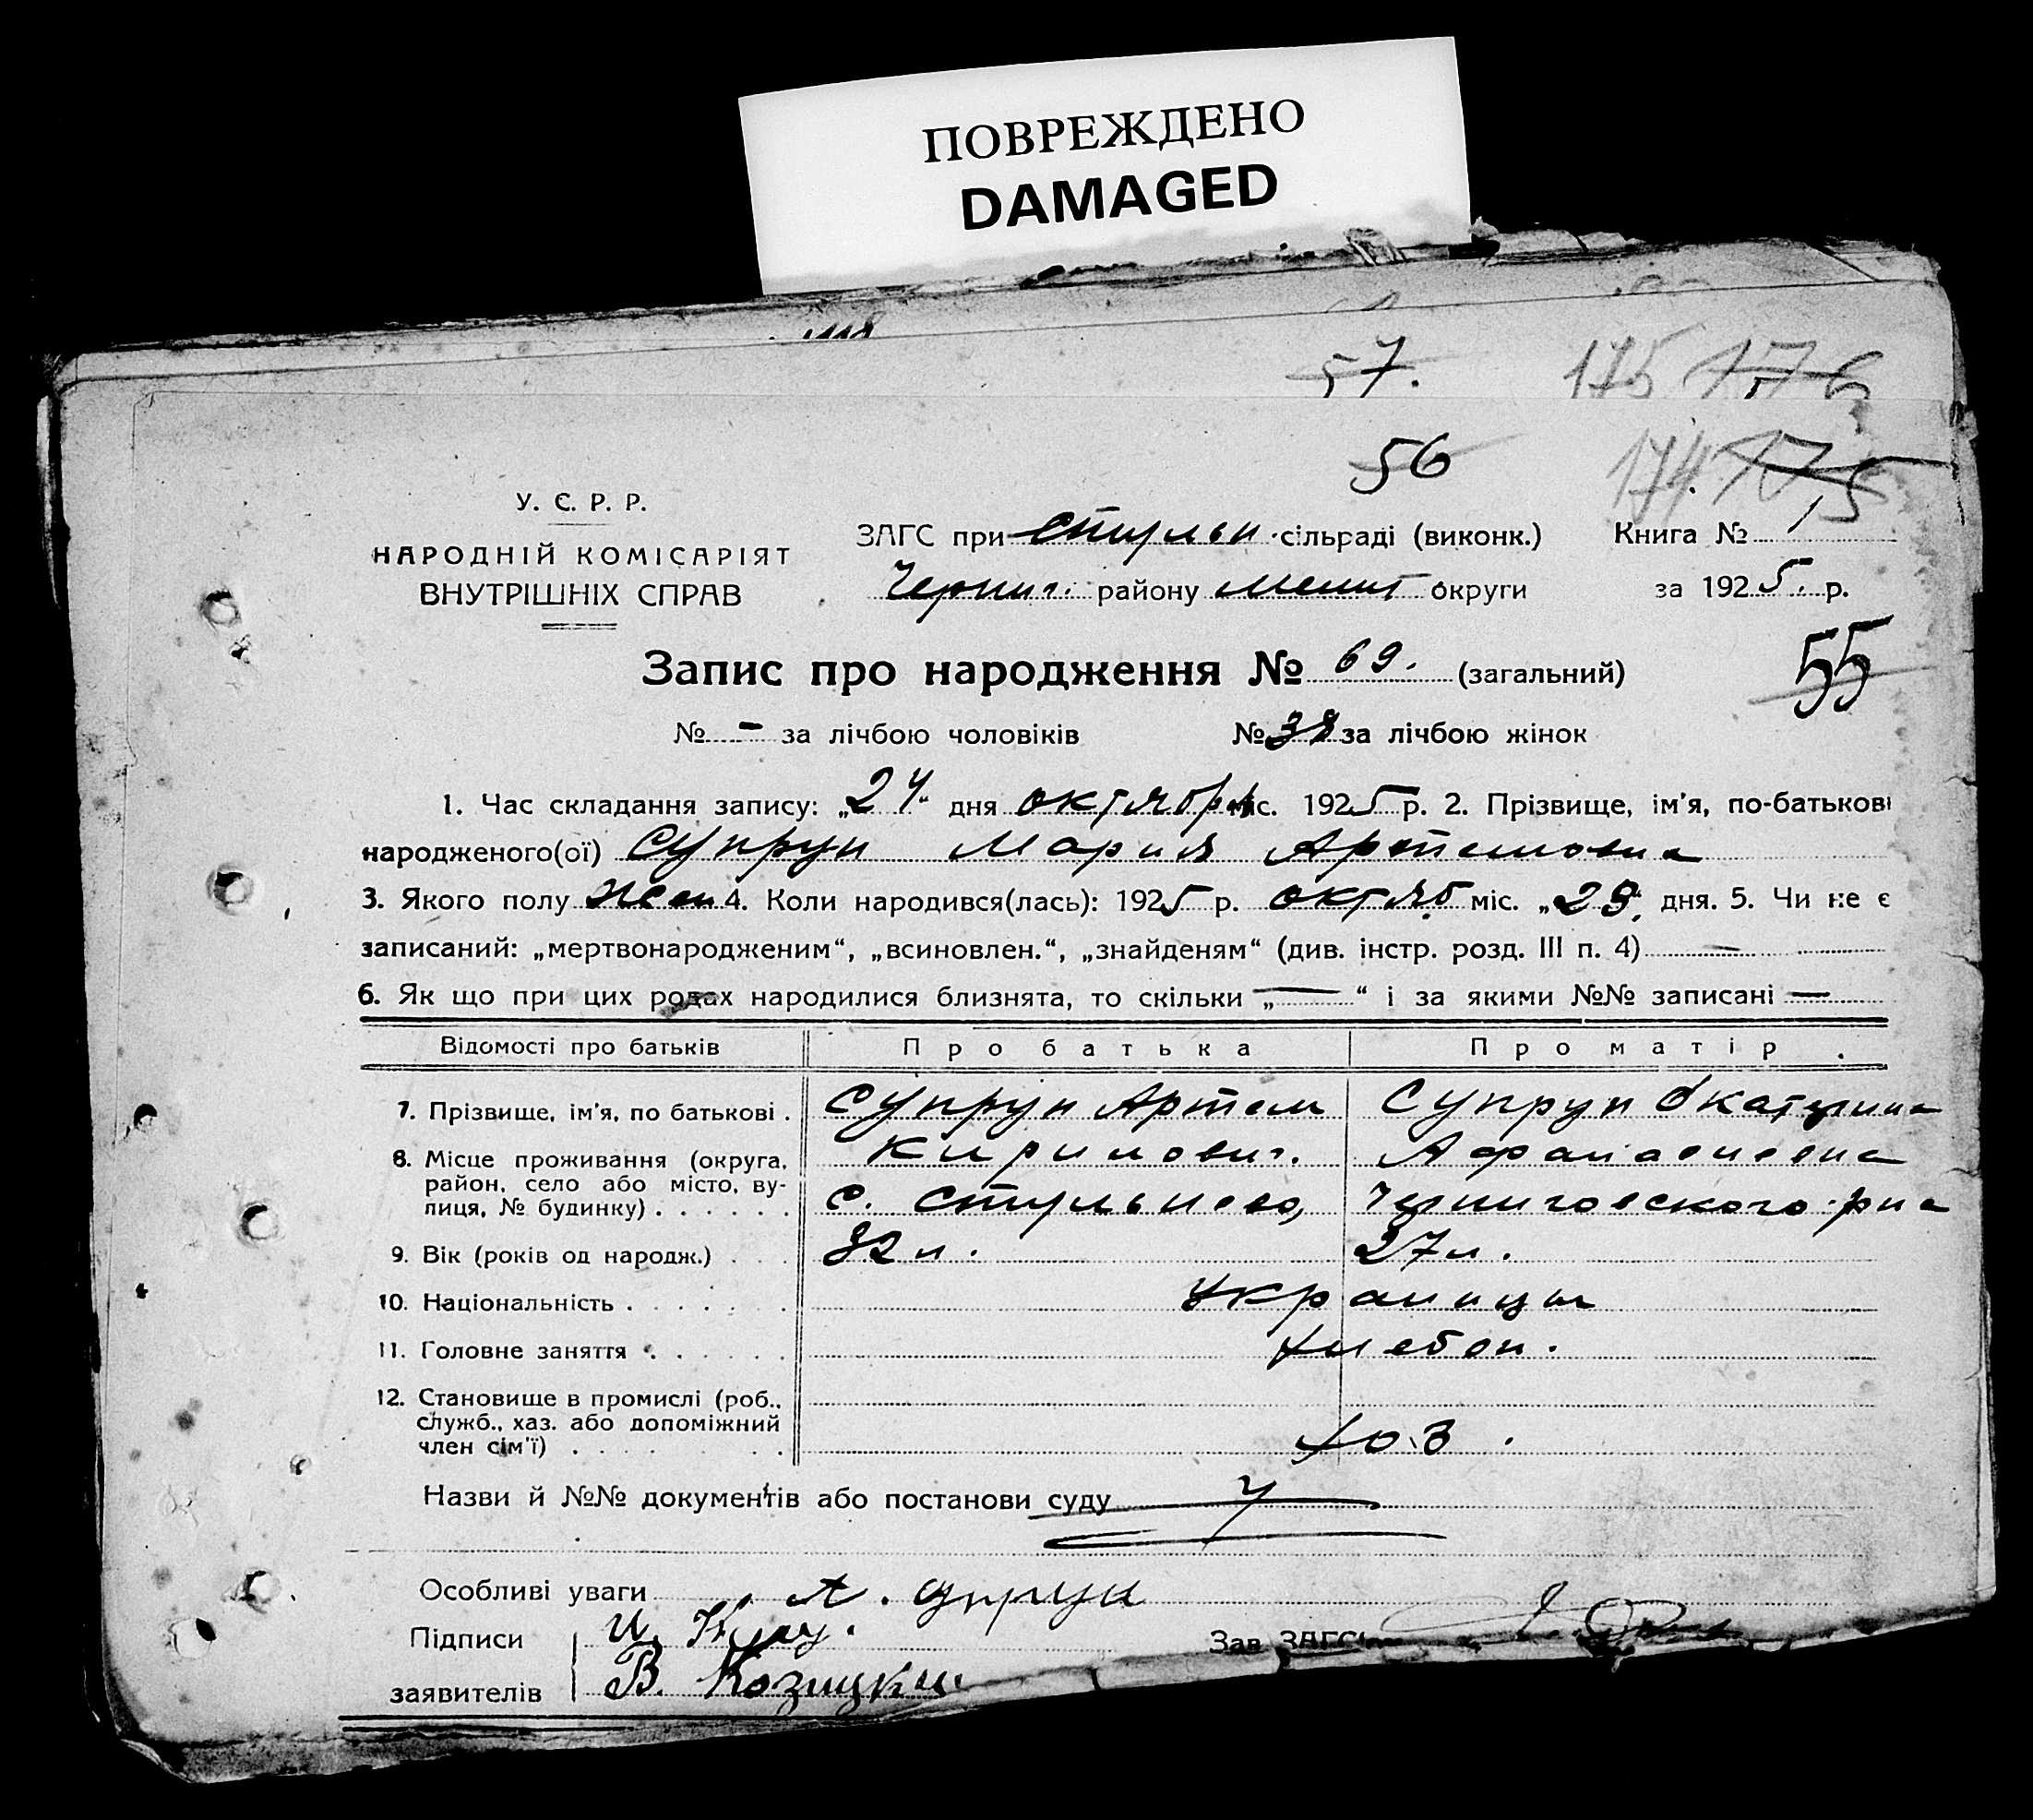 ПОВРЕЖДЕНО
DAMAGED
57.
175 176
56
174. 175
У. С. Р. Р.
НАРОДНІЙ КОМІСАРІЯТ
ВНУТРІШНІХ СПРАВ
ЗАГС при Стульн сільраді (виконк.) Книга № 1
Черниг. району Мелит округи за 1925. р.
Запис про народження № 69. (загальний)
55
№ - за лічбою чоловіків № 38 за лічбою жінок
1. Час складання запису: „24“ дня октября міс. 1925 р. 2. Прізвище, ім'я, по-батькові
народженого(ої) Супрун Мария Артемовна
3. Якого полу жен 4. Коли народився(лась): 1925 р. октяб міс. „23“ дня. 5. Чи не є
записаний: „мертвонародженим“, „всиновлен.“, „знайденям“ (див. інстр. розд. III п. 4) —
6. Як що при цих родах народилися близнята, то скільки „—“ і за якими №№ записані —
Відомості про батьків Про батька Про матір
7. Прізвище, ім'я, по батькові . Супрун Артем Супрун Екатерина
Кирилович. Афанасиевна
8. Місце проживання (округа,
район, село або місто, ву-
лиця, № будинку) . . . . . . с. Стульнево, Черниговского р-на
9. Вік (років од народж.) . . . 32 л. 27 л.
10. Національність . . . . . . Украинцы
11. Головне заняття . . . . . . Хлебоп.
12. Становище в промислі (роб.,
служб., хаз. або допоміжний
член сім'ї) . . . . . Хоз.
Назви й №№ документів або постанови суду
Особливі уваги А. Супрун
Підписи
заявителів В. Козицки
Зав. ЗАГС'ом